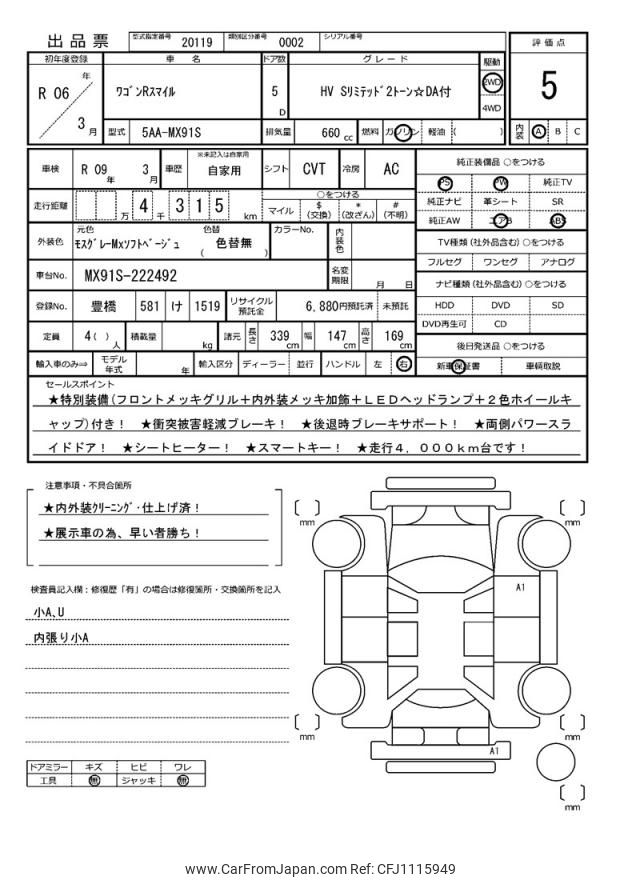 出品票 型式指定番号 20119 類別区分番号 0002 シリアル番号
初年度登録 車名 ドア数 グレード 駆動 評価点
R 06 年 3 月 ワゴンRスマイル 5 D HV Sリミテッド2トーン☆DA付 2WD 4WD 5
型式 5AA-MX91S 排気量 660 cc 燃料 ガソリン 軽油 ( ) 内装 A B C
車検 R 09 年 3 月 車歴 ※未記入は自家用 自家用 シフト CVT 冷房 AC 純正装備品 ○をつける
PS PW 純正TV
走行距離 万 4 千 3 1 5 km ○をつける
マイル $(交換) *(改ざん) #(不明)
純正ナビ 革シート SR
純正AW エアB ABS
外装色 元色 モスグレーMxソフトベージュ 色替 ( 色替無 ) カラーNo. 内装色
TV種類 (社外品含む) ○をつける
フルセグ ワンセグ アナログ
車台No. MX91S-222492 名変期限 月 日
ナビ種類 (社外品含む) ○をつける
登録No. 豊橋 581 け 1519 リサイクル預託金 6,880円預託済 未預託
HDD DVD SD
DVD再生可 CD
定員 4( ) 人 積載量 kg 諸元 長さ 339 cm 幅 147 cm 高さ 169 cm
後日発送品 ○をつける
輸入車のみ⇒ モデル年式 年 輸入区分 ディーラー 並行 ハンドル 左 右
新車保証書 車輌取説
セールスポイント
★特別装備(フロントメッキグリル＋内外装メッキ加飾＋ＬＥＤヘッドランプ＋２色ホイールキ
ャップ)付き！ ★衝突被害軽減ブレーキ！ ★後退時ブレーキサポート！ ★両側パワースラ
イドドア！ ★シートヒーター！ ★スマートキー！ ★走行４，０００ｋｍ台です！
注意事項・不具合箇所
★内外装クリーニング・仕上げ済！
★展示車の為、早い者勝ち！
検査員記入欄：修復歴「有」の場合は修復箇所・交換箇所を記入
小A,U
内張り小A
mm
mm
A1
mm
mm
A1
mm
ドアミラー キズ ヒビ ワレ
工具 無 ジャッキ 無
www.CarFromJapan.com Ref: CFJ1115949